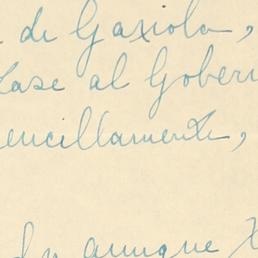 de Gaxiola,
al Gober
encillamente,
aunque